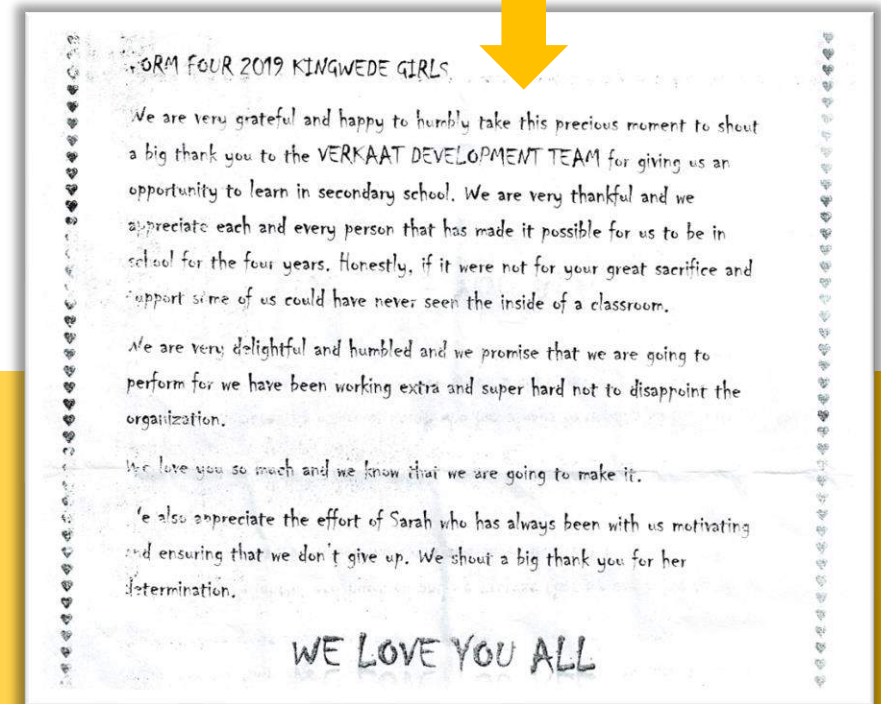 FORM FOUR 2019 KINGWEDE GIRLS
We are very grateful and happy to humbly take this precious moment to shout
a big thank you to the VERKAAT DEVELOPMENT TEAM for giving us an
opportunity to learn in secondary school. We are very thankful and we
appreciate each and every person that has made it possible for us to be in
school for the four years. Honestly, if it were not for your great sacrifice and
support some of us could have never seen the inside of a classroom.
We are very delightful and humbled and we promise that we are going to
perform for we have been working extra and super hard not to disappoint the
organization.
We love you so much and we know that we are going to make it.
We also appreciate the effort of Sarah who has always been with us motivating
and ensuring that we don't give up. We shout a big thank you for her
determination.
WE LOVE YOU ALL